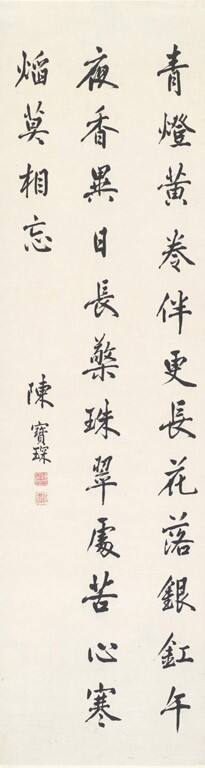 青燈黃卷伴更長花落銀釭午
夜香異日長檠珠翠處苦心寒
熖莫相忘
陳寶琛